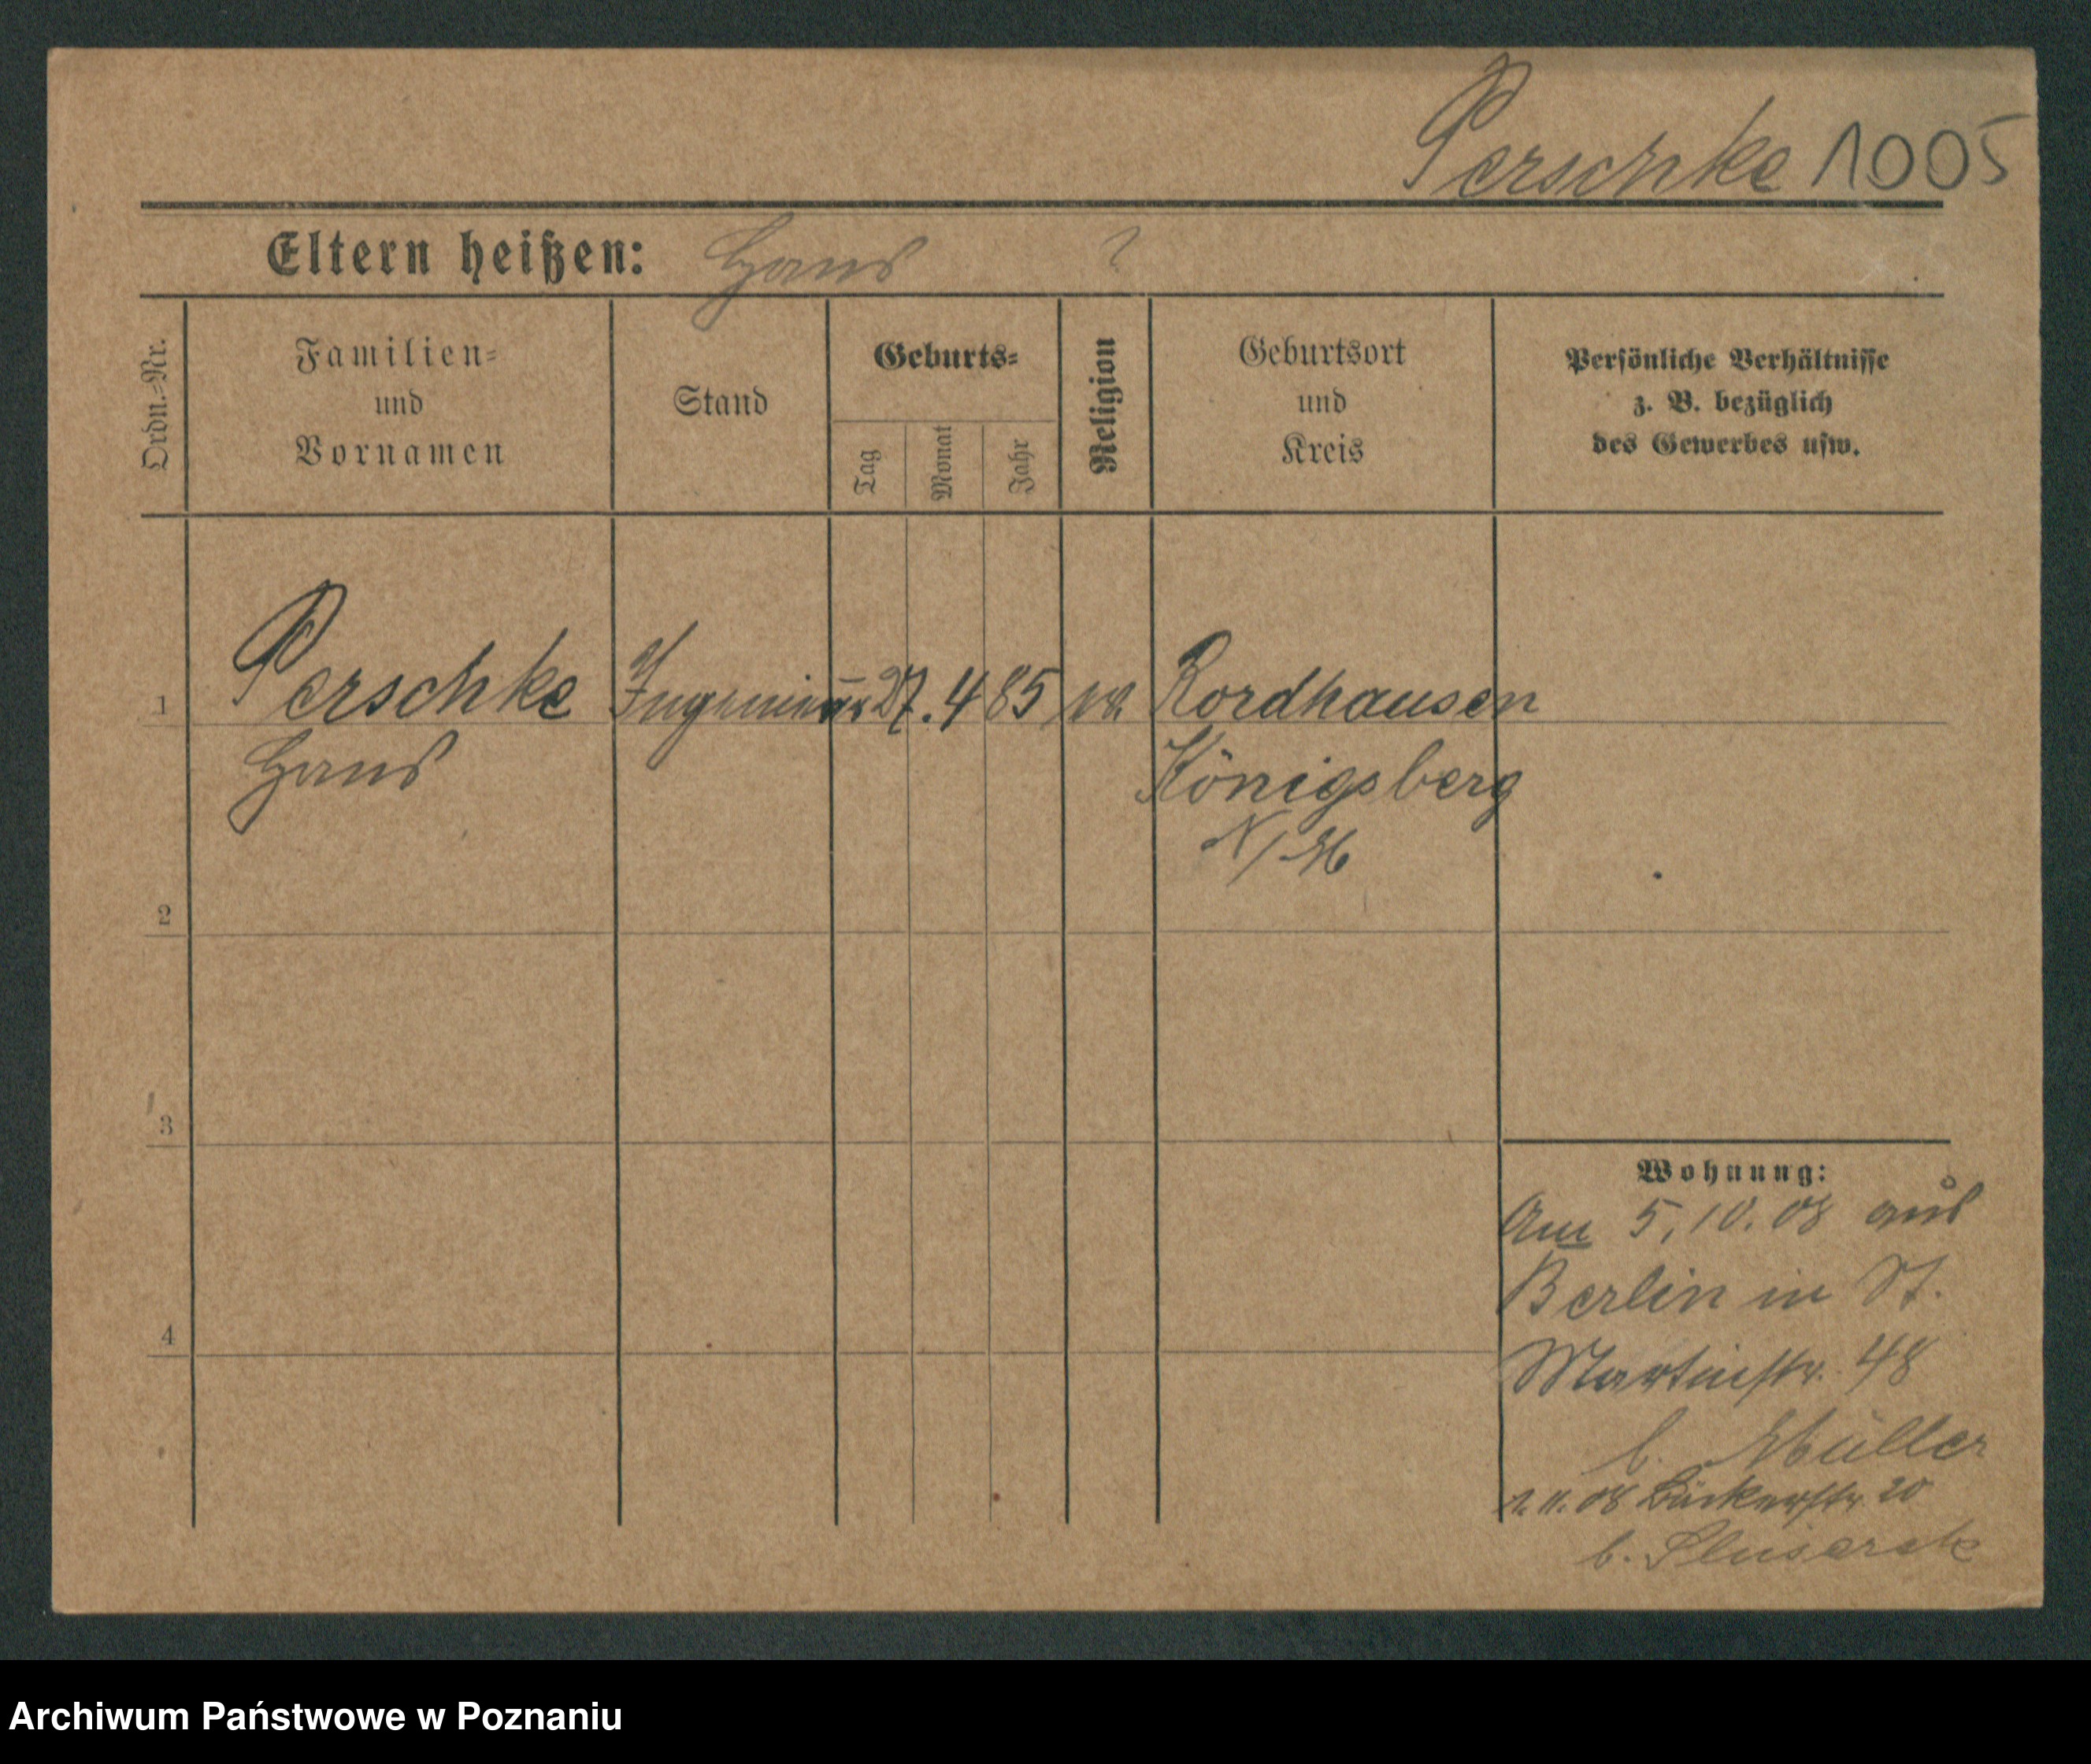 Perschke 1005
Eltern heißen: Hans ?
Ordn.-Nr.
Familien-
und
Vornamen
Stand
Geburts-
Tag
Monat
Jahr
Religion
Geburtsort
und
Kreis
Persönliche Verhältnisse
z. B. bezüglich
des Gewerbes usw.
1 Perschke Ingenieur 27. 4 85 ev. Rordhausen
Hans Königsberg
N/M
2
3
4
Wohnung:
Am 5. 10. 08 aus
Berlin in St.
Martinstr. 48
b. Müller
1. 11. 08 Bäckerstr 20
b.
Archiwum Państwowe w Poznaniu